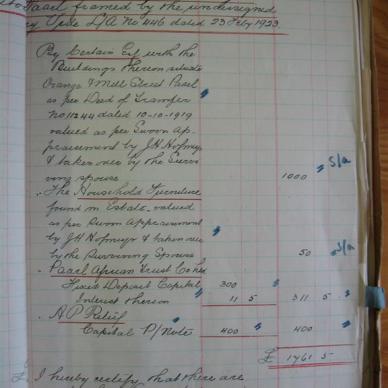 to Paarl framed by the undersigned
Vide L/A No 446 dated 23 Feby 1923
By Certain Erf with the
Buildings thereon situate
Orange & Mill Street Paarl
as per Deed of Transfer
No 11244 dated 10-10-1919
valued as per Sworn Ap-
praisement by J H Hofmeyr
& taken over by the Survi-
ving spouse 1000 S/a
The Household Furniture
found in Estate valued
as per Sworn Appraisement
by J H Hofmeyr & taken over
by the Surviving Spouse 50 S/a
Paarl African Trust Co Ltd
Fixed Deposit Capital 300
Interest thereon 11 5 311 5
A P Retief
Capital P/Note 400 400
£ 1761 5
I hereby certify that there are